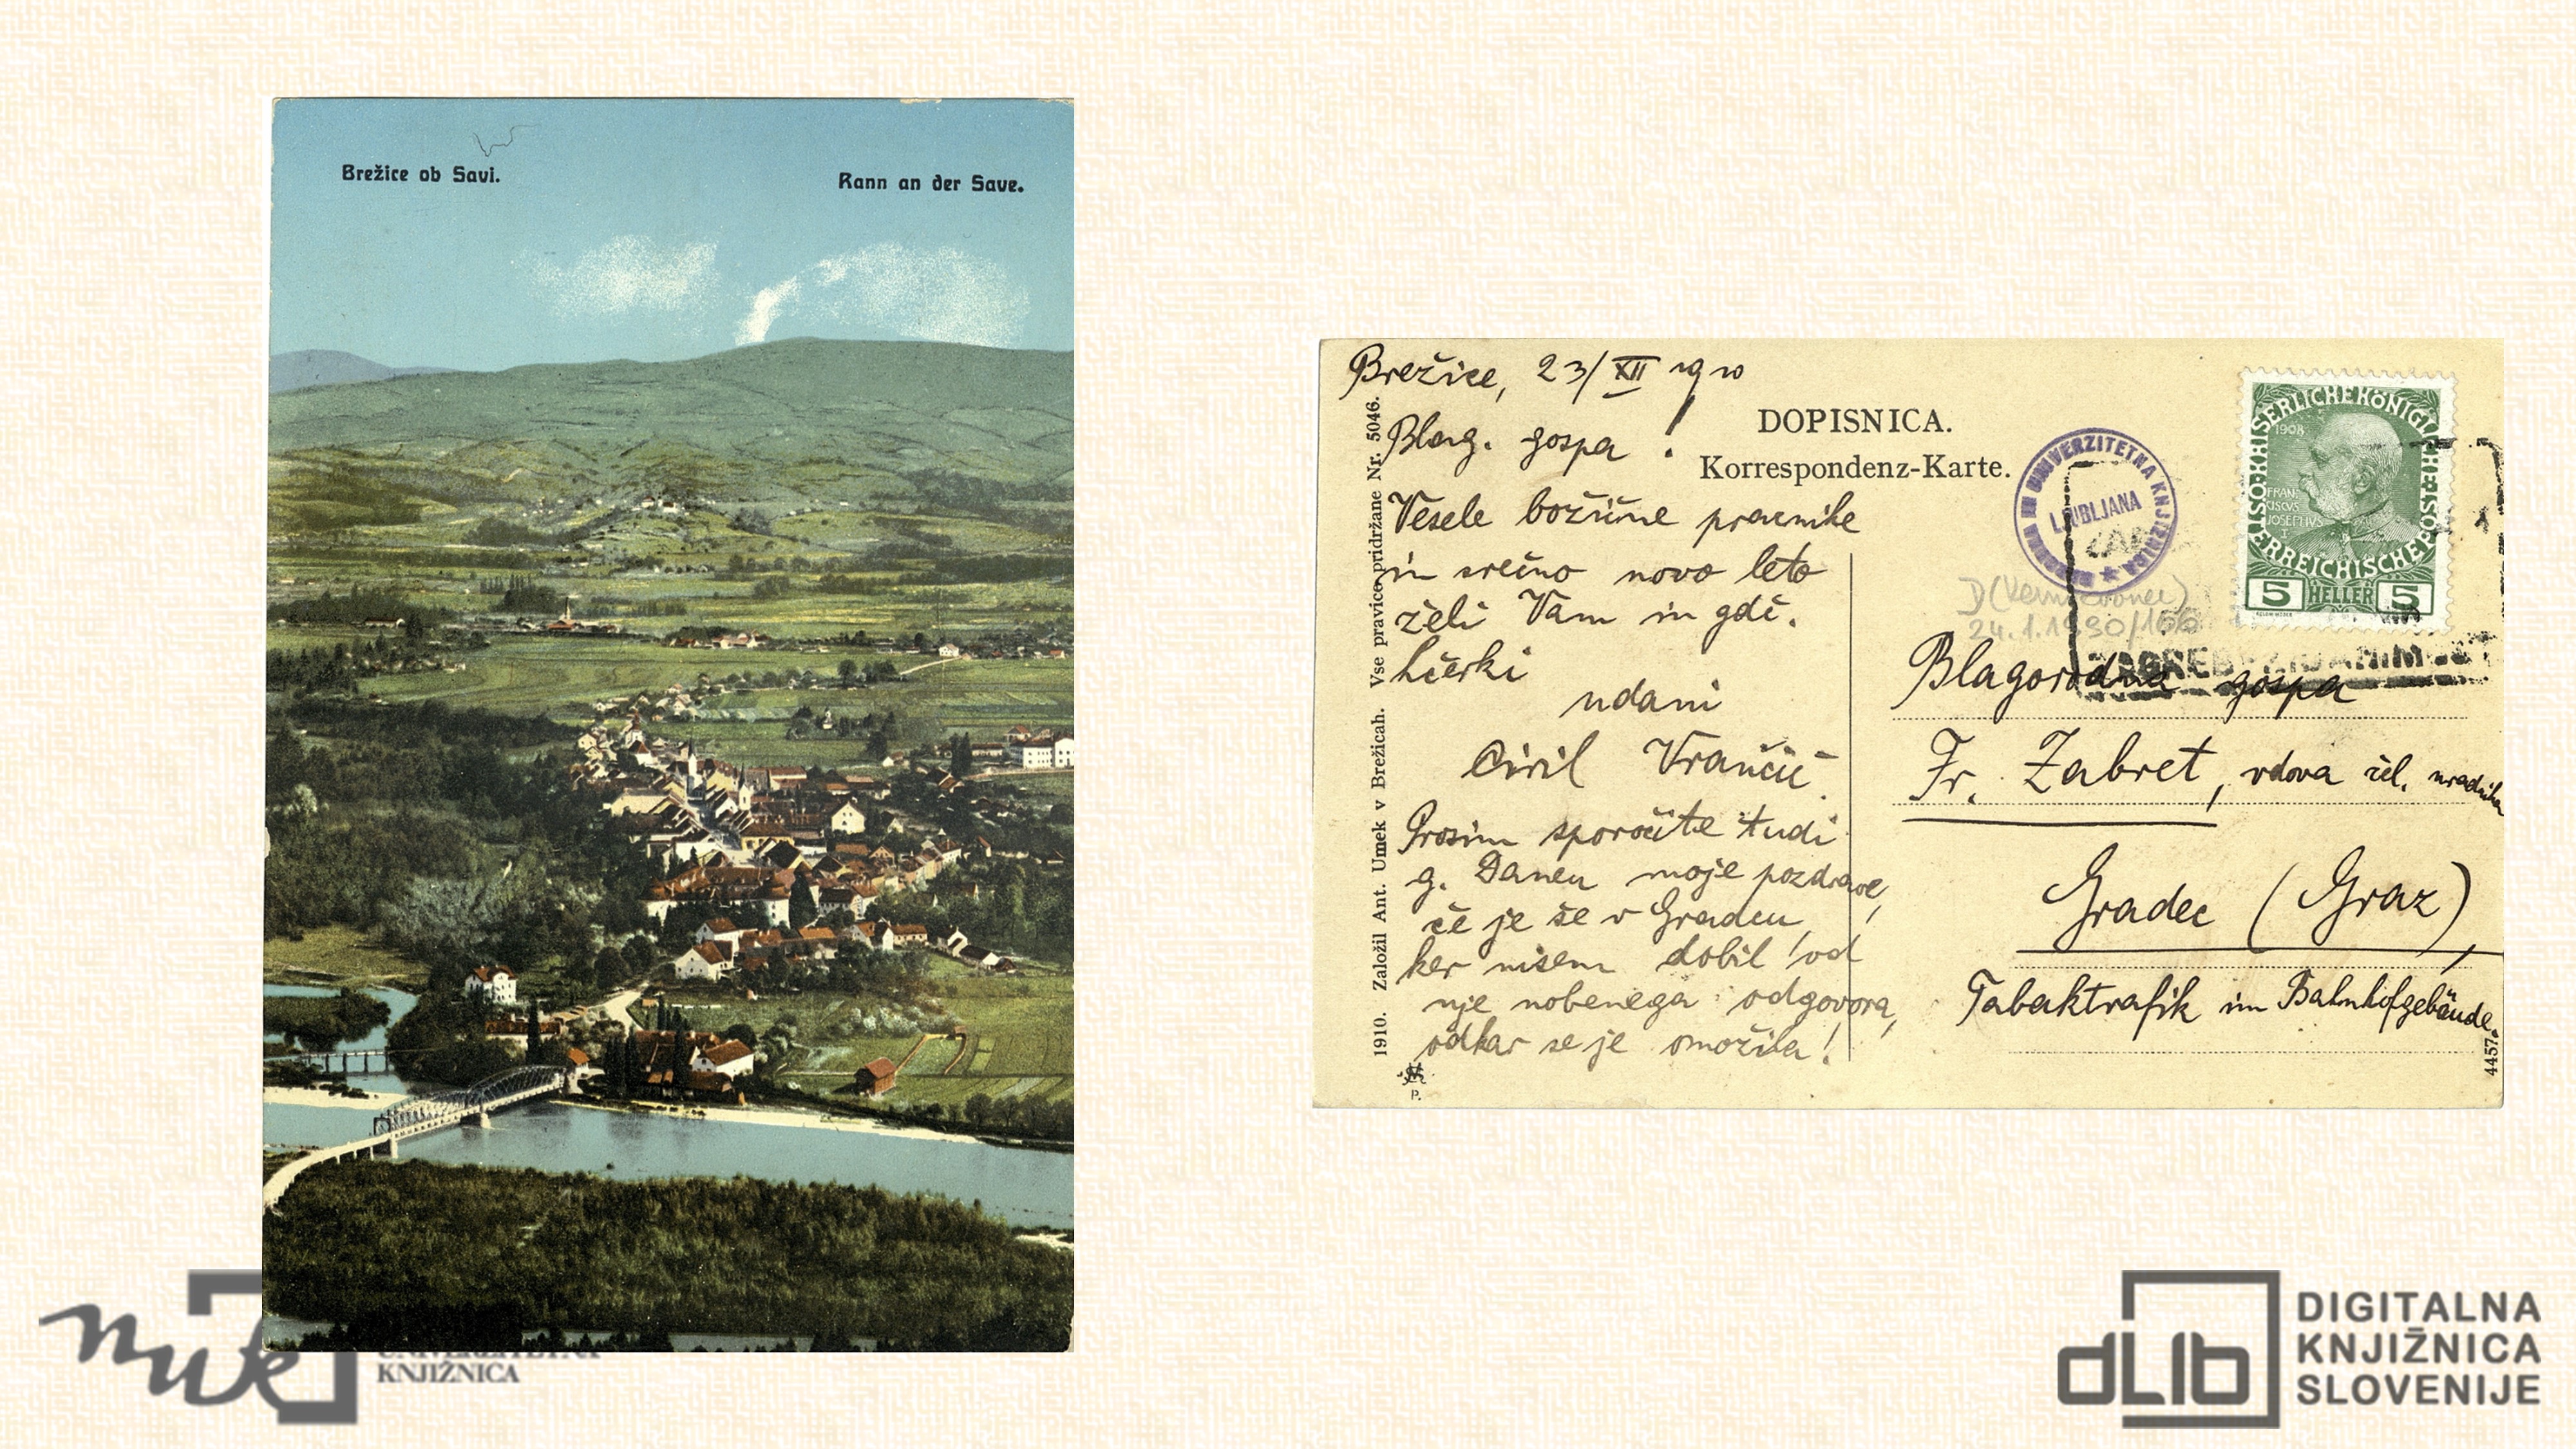 Brežice ob Savi.
Rann an der Save.
Brežice, 23/XII 1910
Blag. gospa!
DOPISNICA.
Korrespondenz-Karte.
Vesele božične praznike
in srečno novo leto
želi Vam in gdč.
hčerki
udani
Ciril Vrančič.
Prosim sporočite tudi
g. Daneu moje pozdrave,
če je še v Gradcu,
ker nisem dobil od
nje nobenega odgovora,
odkar se je omožila!
1910. Založil Ant. Umek v Brežicah. Vse pravice pridržane Nr. 5046.
P.
UNIVERZITETNA KNJIŽNICA
LJUBLJANA
KAISERLICHE KÖNIGLICHE ÖSTERREICHISCHE POST
1908
FRANCISCVS JOSEFIVS I
5 HELLER 5
24.1.1930/166
ZAGREB
Blagorodna gospa
Fr. Zabret, vdova žel. uradnika
Gradec (Graz),
Tabaktrafik im Bahnhofgebäude.
4457
nuk
UNIVERZITETNA
KNJIŽNICA
dLib
DIGITALNA
KNJIŽNICA
SLOVENIJE